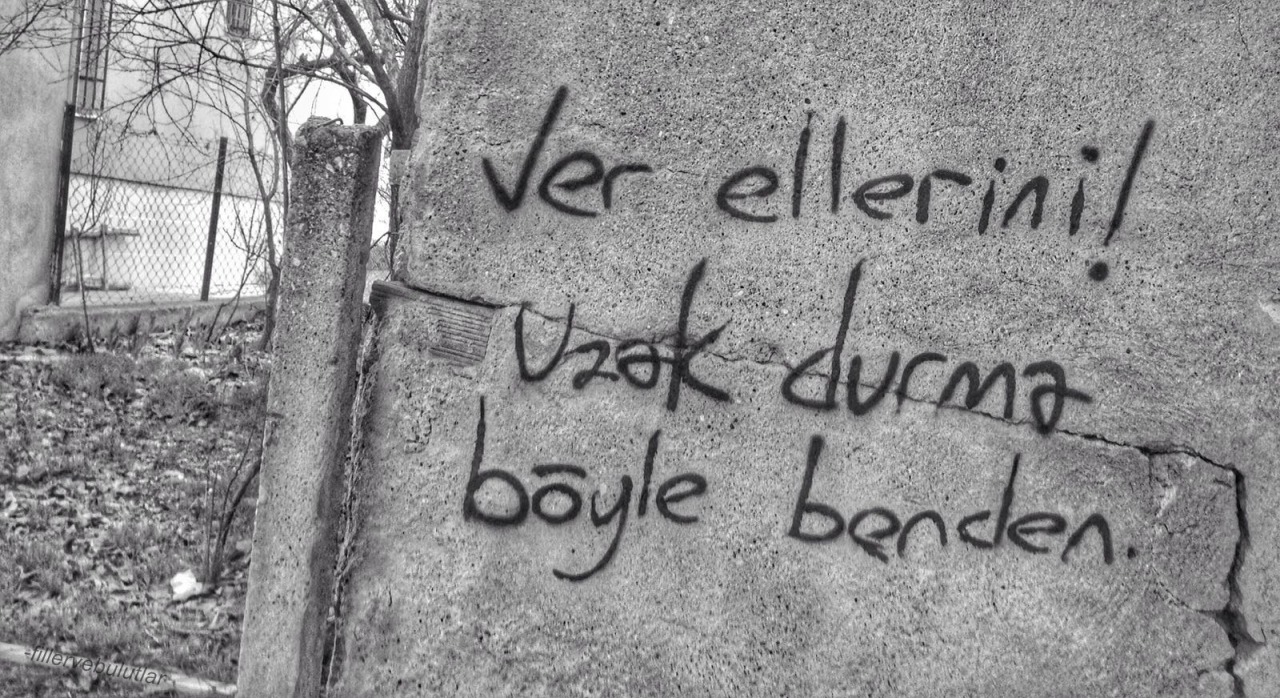 Ver ellerini!
Uzak durma
böyle benden.
-fillervebulutlar-